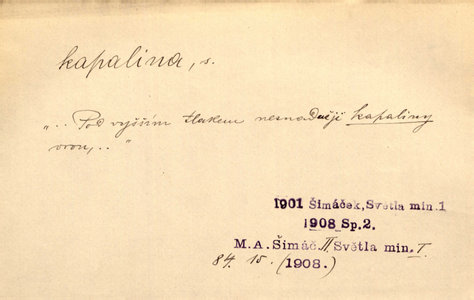 kapalina, s.
„.. Pod vyšším tlakem nesnadněji kapaliny
vrou,.. "
1901 Šimáček, Světla min.1
1908 Sp.2.
M.A.Šimáč. II Světla min. I.
84. 15. (1908.)